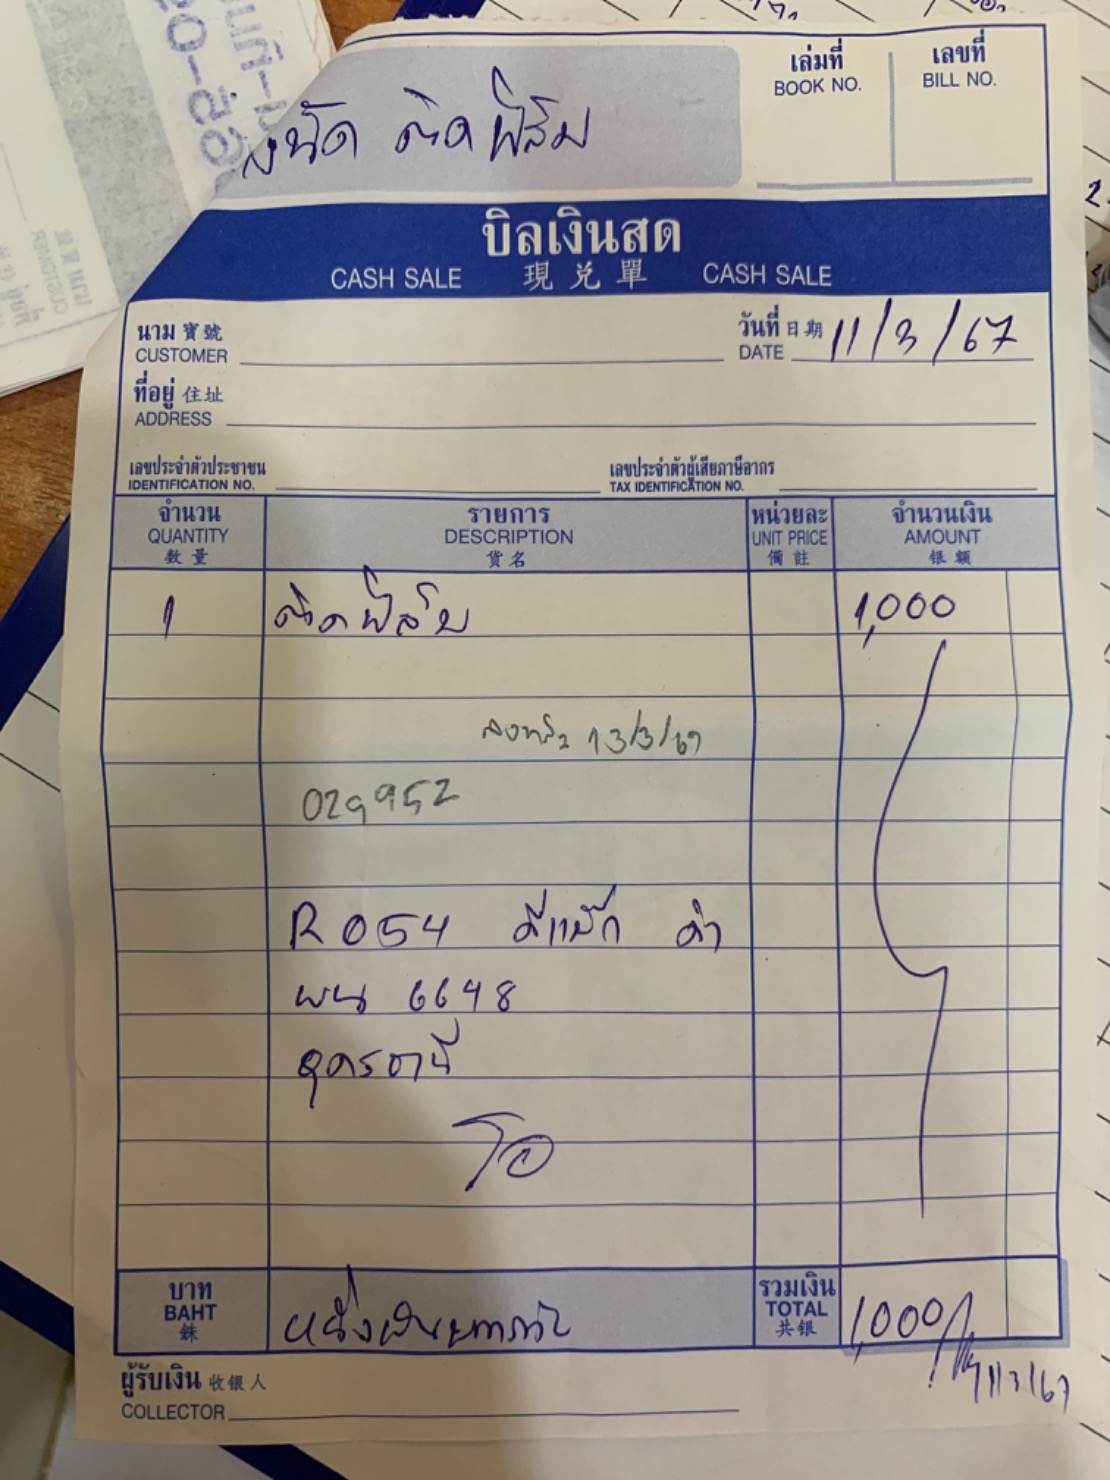 เล่มที่ เลขที่
BOOK NO. BILL NO.
ติดฟิล์ม
บิลเงินสด
CASH SALE 現兌單 CASH SALE
นาม 寶號 วันที่ 日期 11/3/67
CUSTOMER DATE
ที่อยู่ 住址
ADDRESS
เลขประจำตัวประชาชน เลขประจำตัวผู้เสียภาษีอากร
IDENTIFICATION NO. TAX IDENTIFICATION NO.
จำนวน รายการ หน่วยละ จำนวนเงิน
QUANTITY DESCRIPTION UNIT PRICE AMOUNT
数量 貨名 備註 银額
1 ติดฟิล์ม 1,000
13/3/67
029952
R054 ดีแม๊ก ดำ
ผน 6648
อุดรธานี
โอ
บาท รวมเงิน
BAHT หนึ่งพันบาทถ้วน TOTAL 1,000
銖 共银
11/3/67
ผู้รับเงิน 收银人
COLLECTOR